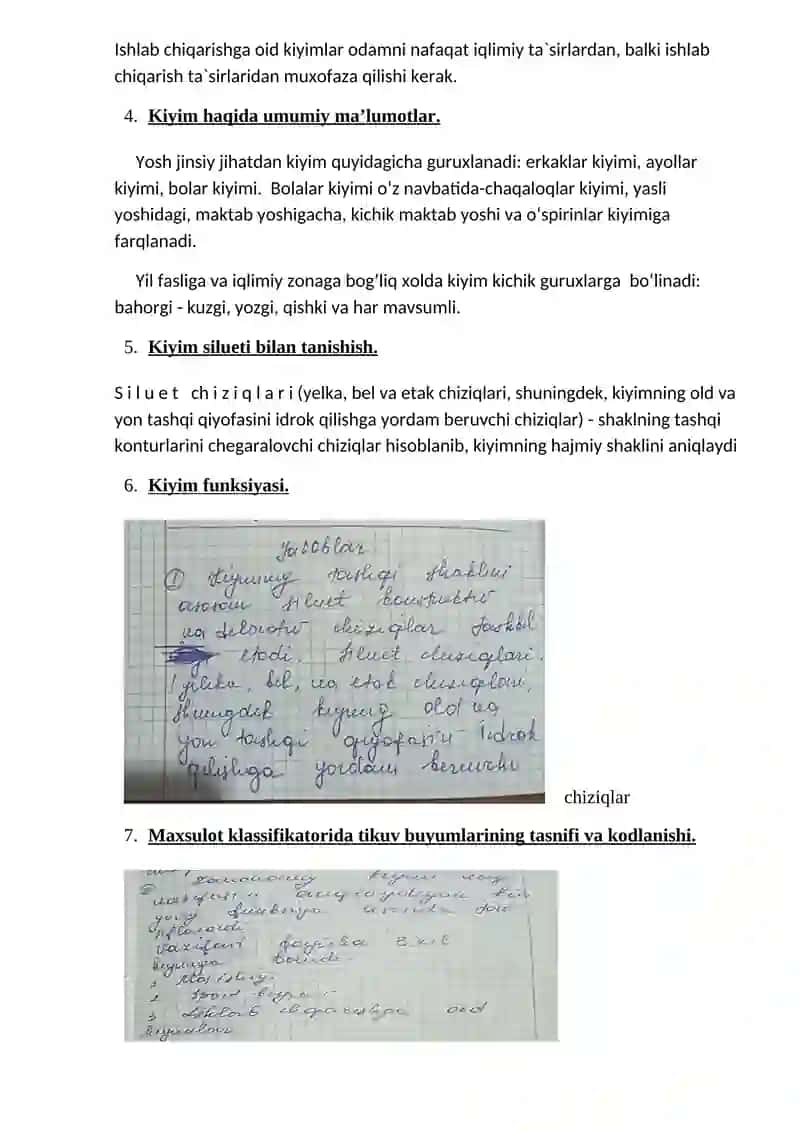 Ishlab chiqarishga oid kiyimlar odamni nafaqat iqlimiy ta`sirlardan, balki ishlab
chiqarish ta`sirlaridan muxofaza qilishi kerak.
4. Kiyim haqida umumiy ma’lumotlar.
Yosh jinsiy jihatdan kiyim quyidagicha guruxlanadi: erkaklar kiyimi, ayollar
kiyimi, bolar kiyimi. Bolalar kiyimi o‘z navbatida-chaqaloqlar kiyimi, yasli
yoshidagi, maktab yoshigacha, kichik maktab yoshi va o‘spirinlar kiyimiga
farqlanadi.
Yil fasliga va iqlimiy zonaga bog‘liq xolda kiyim kichik guruxlarga bo‘linadi:
bahorgi - kuzgi, yozgi, qishki va har mavsumli.
5. Kiyim silueti bilan tanishish.
S i l u e t ch i z i q l a r i (yelka, bel va etak chiziqlari, shuningdek, kiyimning old va
yon tashqi qiyofasini idrok qilishga yordam beruvchi chiziqlar) - shaklning tashqi
konturlarini chegaralovchi chiziqlar hisoblanib, kiyimning hajmiy shaklini aniqlaydi
6. Kiyim funksiyasi.
Javoblar
① Kiyimning tashqi shaklini
asosan siluet konstruktiv
va dekorativ chiziqlar tashkil
etadi. Siluet chiziqlari.
yelka, bel, va etak chiziqlari,
shuningdek kiyimning old va
yon tashqi qiyofasini idrok
qilishga yordam beruvchi
chiziqlar
7. Maxsulot klassifikatorida tikuv buyumlarining tasnifi va kodlanishi.
kiyim
vazifasini
funksiya asosida
Vazifasi boyicha 3 xil
boladi
1
2 Sport kiyim
3 Ishlab chiqarishga oid
kiyimlar